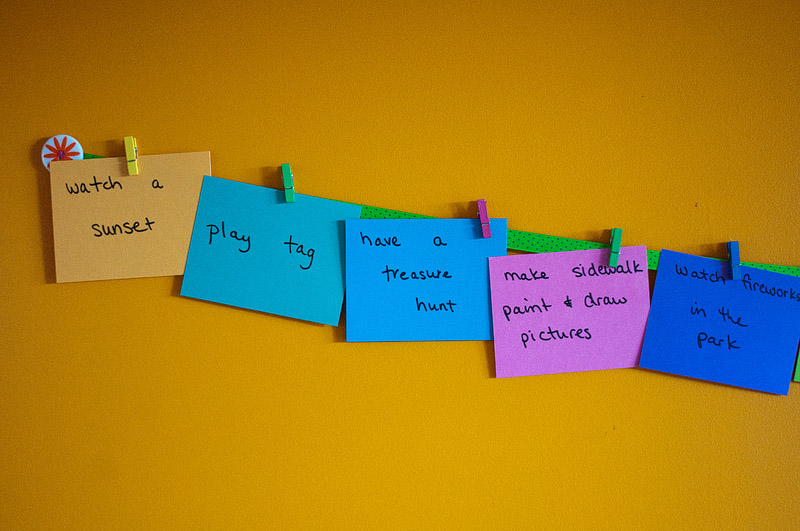 watch a
sunset
play tag
have a
treasure
hunt
make sidewalk
paint & draw
pictures
watch fireworks
in the
park